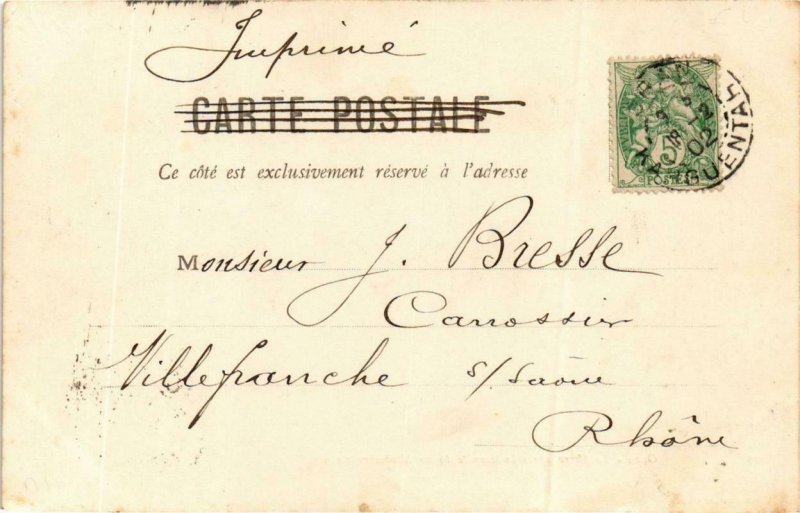 Imprimé
CARTE POSTALE
Ce côté est exclusivement réservé à l'adresse
Monsieur J. Bresse
Carrossier
Villefranche s/ Saône
Rhône
5
POSTES
18
02